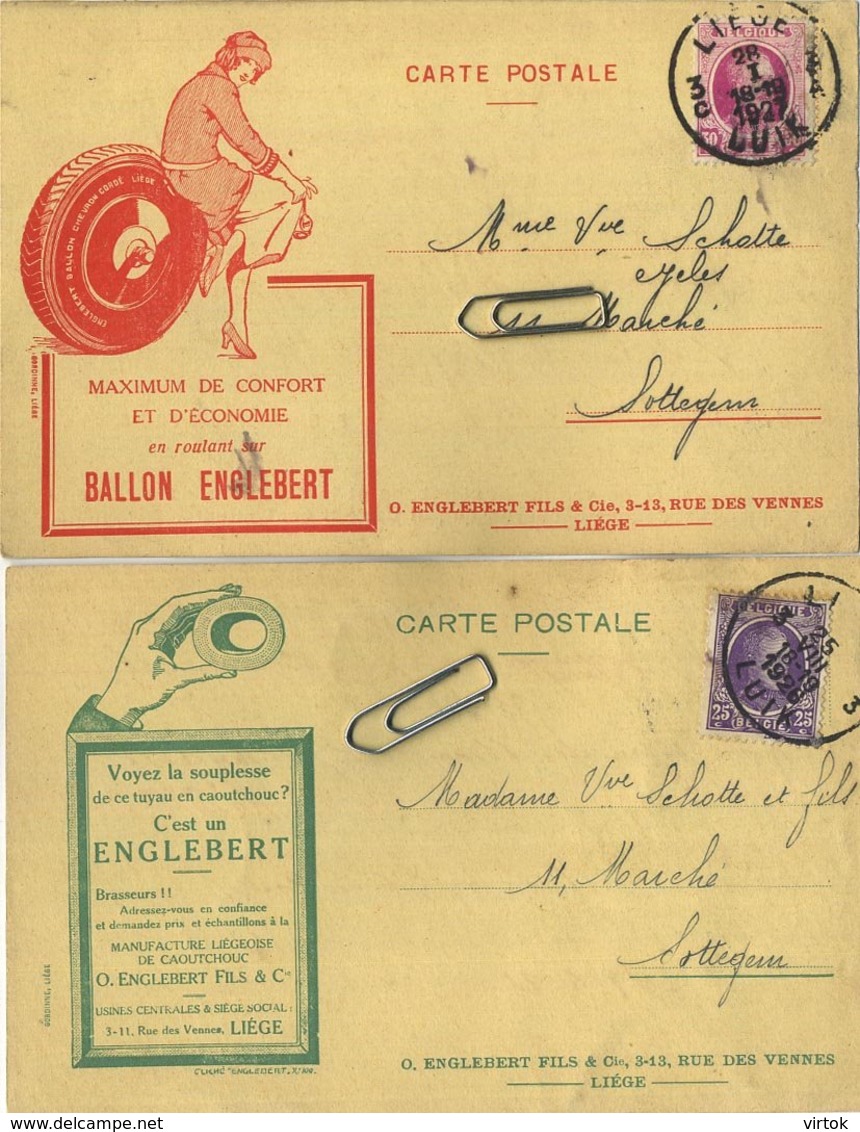 CARTE POSTALE
BELGIQUE
30
LIEGE
28
I
18-19
1927
LUIK
ENGLEBERT BALLON CHEVRON CORDÉ LIÉGE
Mme Vve Schotte
cycles
11 Marché
Sottegem
GORDINNE, LIÉGE
MAXIMUM DE CONFORT
ET D'ÉCONOMIE
en roulant sur
BALLON ENGLEBERT
O. ENGLEBERT FILS & Cie, 3-13, RUE DES VENNES
LIÉGE
CARTE POSTALE
BELGIQUE
25 25
BELGIË
25
VIII
18-19
1926
LUIK
3
Voyez la souplesse
de ce tuyau en caoutchouc?
C'est un
ENGLEBERT
Brasseurs !!
Adressez-vous en confiance
et demandez prix et échantillons à la
MANUFACTURE LIÉGEOISE
DE CAOUTCHOUC
O. ENGLEBERT FILS & Cie
USINES CENTRALES & SIÈGE SOCIAL :
3-11, Rue des Vennes, LIÉGE
GORDINNE, LIÉGE
Madame Vve Schotte et fils
11, Marché
Sottegem
O. ENGLEBERT FILS & Cie, 3-13, RUE DES VENNES
LIÉGE
delcampe.net
virtok